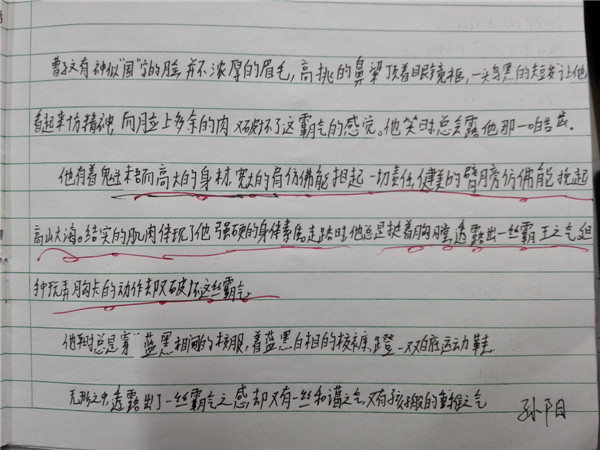 曹子文有神似"国"字的脸,并不浓厚的眉毛,高挑的鼻梁顶着眼镜框,一头乌黑的短发让他
看起来十分精神,向脸上多余的肉又破坏了这霸气的感觉。他笑时总会露他那一口皓齿。
他有着魁梧而高大的身材,宽大的肩仿佛能担起一切责任,健美的臂膀仿佛能挽起
高山大海。结实的肌肉体现了他强硬的身体素质,走路时,他总是挺着胸膛,透露出一丝霸王之气,但
种玩弄胸卡的动作却又破坏这丝霸气。
他平时总是穿"蓝黑相间的校服,着蓝黑白相的校裤,蹬一双白底运动鞋。
无形之中,透露出了一丝霸气之感,却又有一丝和谐之气,又有孩子般的童稚之气
孙阳